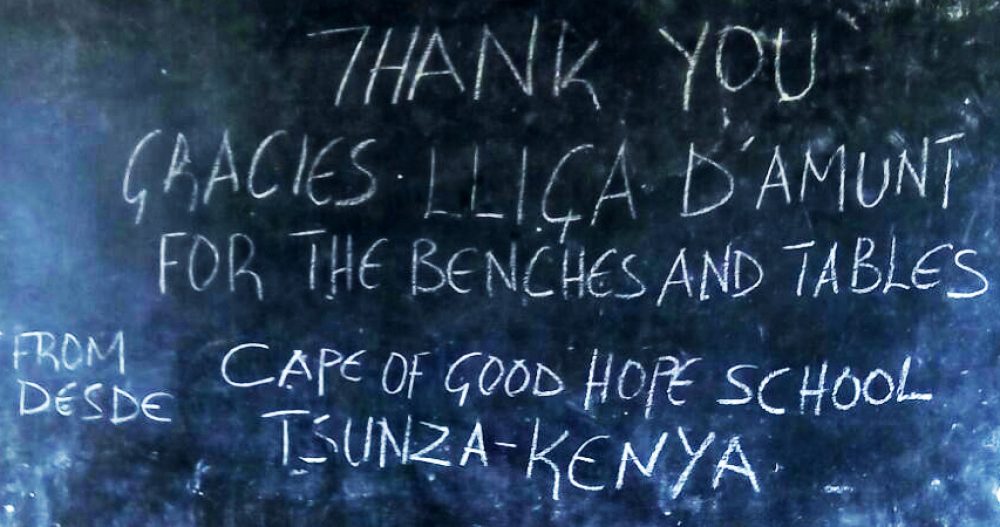 THANK YOU
GRACIES. LLIÇA. D'AMUNT
FOR THE BENCHES AND TABLES
FROM
DESDE
CAPE OF GOOD HOPE SCHOOL
TSUNZA-KENYA.